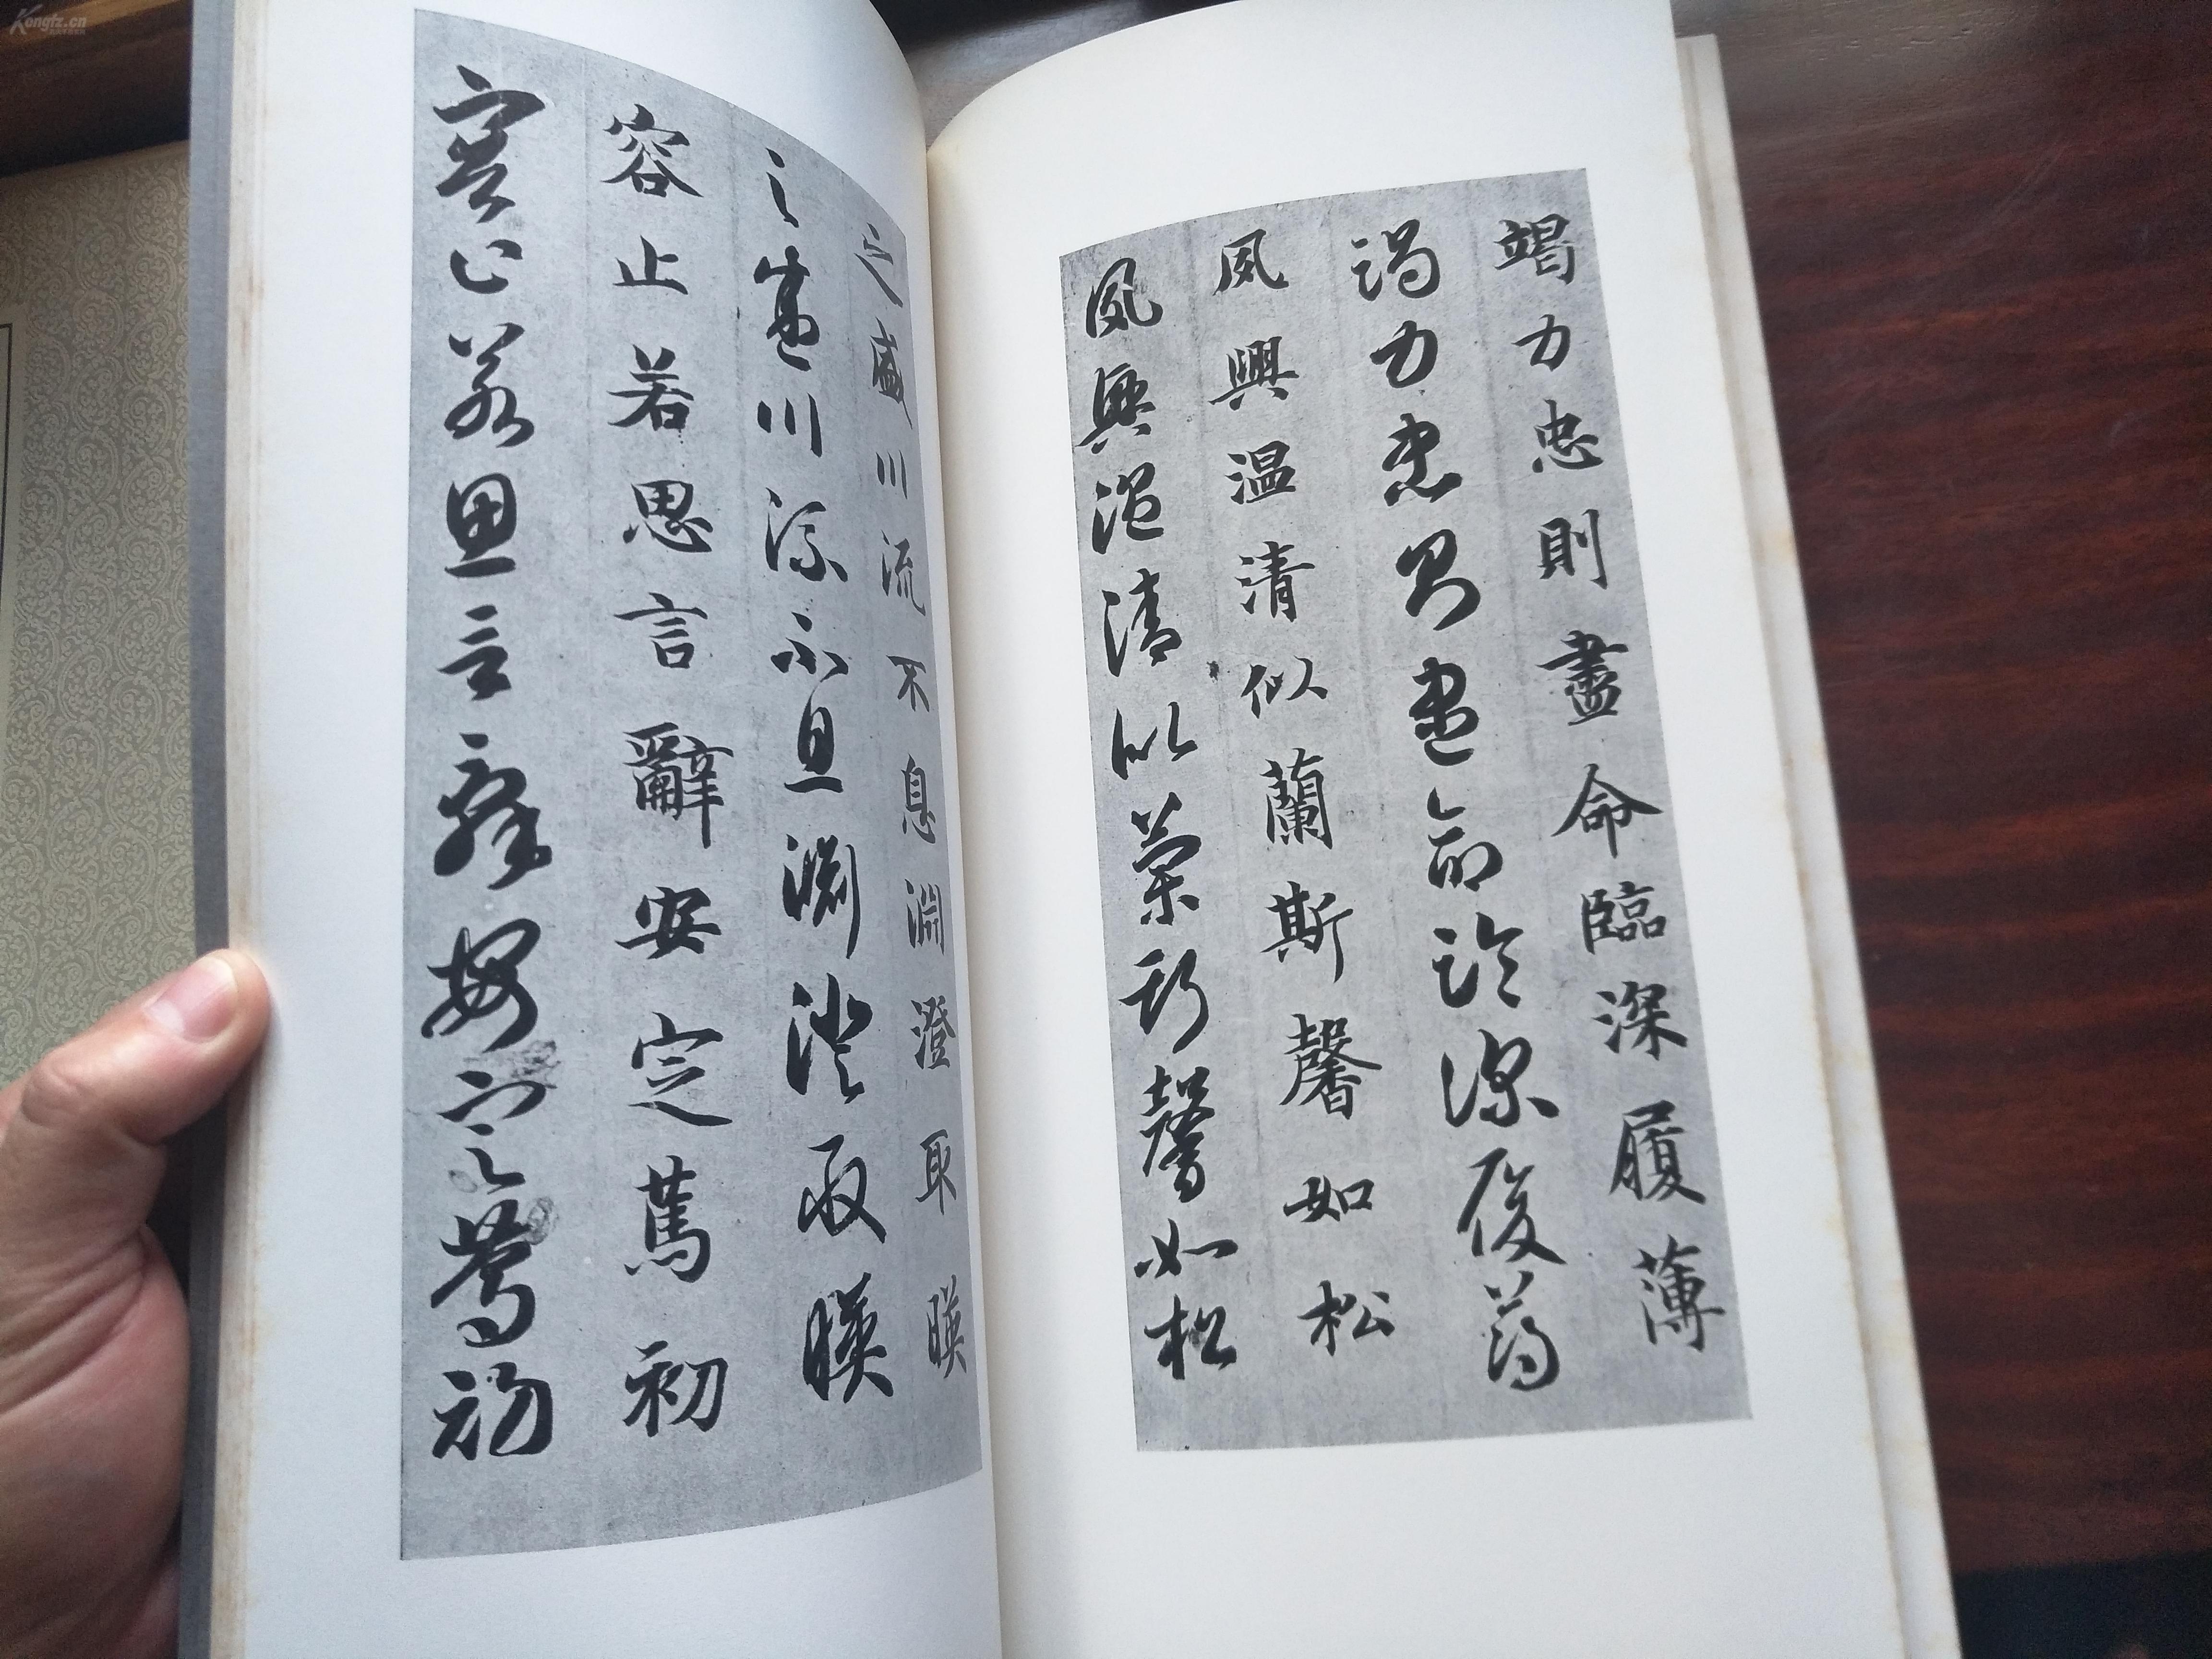 竭力忠則盡命臨深履薄
竭力忠則盡命臨深履薄
夙興温清似蘭斯馨如松
夙興温清似蘭斯馨如松
之盛川流不息淵澄取暎
之盛川流不息淵澄取暎
容止若思言辭安定篤初
容止若思言辭安定篤初
Kongfz.cn